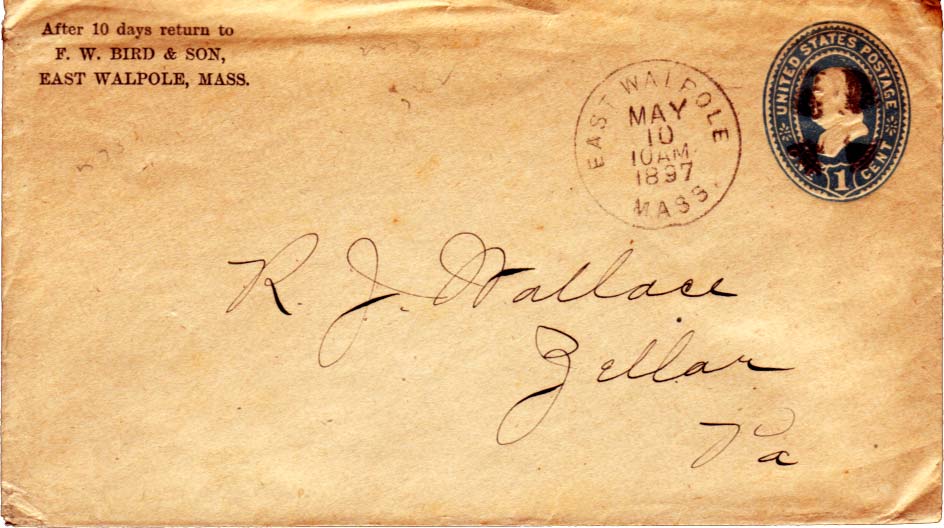 After 10 days return to
F. W. BIRD & SON,
EAST WALPOLE, MASS.
EAST WALPOLE
MAY
10
10 AM
1897
MASS.
UNITED STATES POSTAGE
ONE 1 CENT
R. J. Wallace
Zellar
Pa